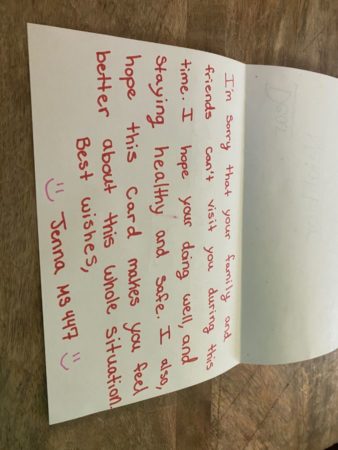 Dear
I'm sorry that your family and
friends can't visit you during this
time. I hope your doing well, and
staying healthy and safe. I also,
hope this card makes you feel
better about this whole situation.
Best wishes,
Jenna MS 447